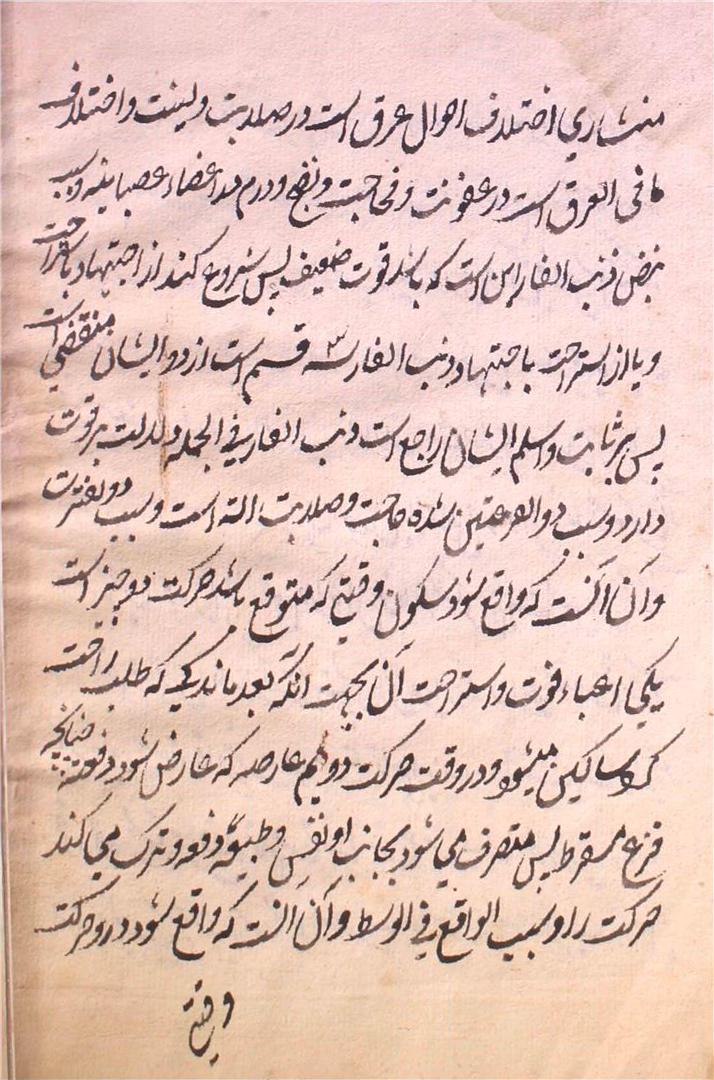 منشاري اختلاف احوال عرق است در صلابت ولینت و اختلاف
ما فی العرق است در عفونت و فجاجت و نضج و ورم در اعضاء عصبانیه و سبب
نبض ذنب الفار این است که باشد قوت ضعیف پس شروع کند از اجتهاد باستراحت
و یا از استراحت باجتهاد و ذنب الفار سه قسم است از دو ایشان منقضي است
پس بر ثابت و اسلم ایشان راجع است ذنب الفار في الجمله دلالت بر قوت
دارد و سبب ذو القرعتین شده حاجت و صلابت اله است و سبب ذو لفترت
و آن آنست که واقع شود سکون وقتی که متوقع باشد حرکت دو چیز است
یکی اعیاء قوت و استراحت آن بجهت آنکه بعد ماندگی که طلب راحت
کرد ساکن میشود در وقت حرکت دویم عارضه که عارض شود دفعة چنانچه
فزع مفرط پس متصرف می شود بجانب او نفس و طبیعة دفعه و ترک می کند
حرکت را و سبب الواقع في الوسط و آن آنست که واقع شود در و حرکت
وقتی